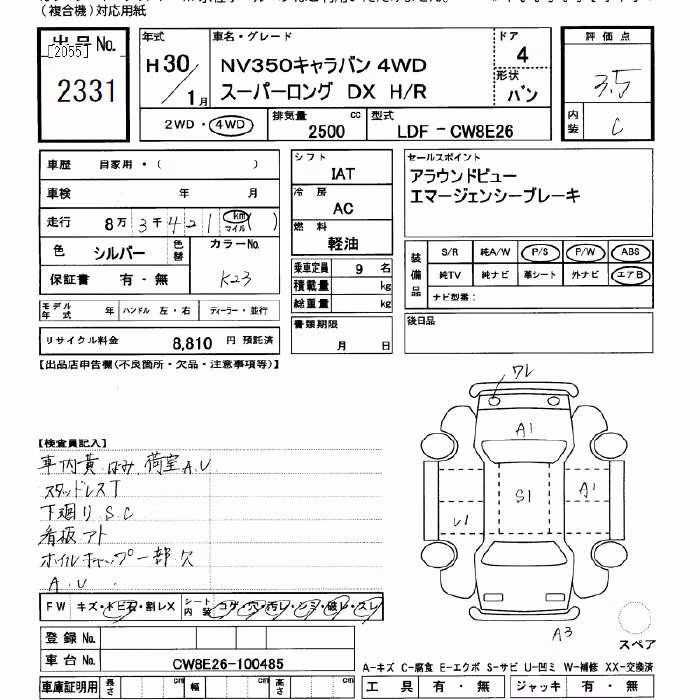 (複合機)対応用紙
出品No.
[2055]
2331
年式
H30/1月
車名・グレード
NV350キャラバン 4WD
スーパーロング DX H/R
ドア
4
形状
バン
評価点
3.5
内装
C
2WD・4WD
排気量
2500 cc
型式
LDF-CW8E26
車歴 自家用・( )
車検 年 月
走行 8万3千421 km マイル( )
色 シルバー
色替
カラーNo.
K23
保証書 有・無
シフト
IAT
冷房
AC
燃料
軽油
乗車定員 9 名
積載量 kg
総重量 kg
書類期限
月 日
セールスポイント
アラウンドビュー
エマージェンシーブレーキ
装備品
S/R 純A/W P/S P/W ABS
純TV 純ナビ 革シート 外ナビ エアB
ナビ型番:
後日品
モデル年式 年 ハンドル 左・右 ディーラー・並行
リサイクル料金 8,810 円 預託済
【出品店申告欄(不良箇所・欠品・注意事項等)】
ワレ
A1
S1
A1
U1
A3
スペア
【検査員記入】
車内黄ばみ 荷室A.U
スタッドレスT
下廻りS.C
看板アト
ホイルキャップ一部欠
A.U.
FW キズ・トビ石・割レX
シート内装 コゲ・穴・汚レ・シミ・破レ・スレ
登録No.
車台No. CW8E26-100485
車庫証明用 長さ cm 幅 cm 高さ cm
A-キズ C-腐食 E-エクボ S-サビ U-凹ミ W-補修 XX-交換済
工具 有・無 ジャッキ 有・無